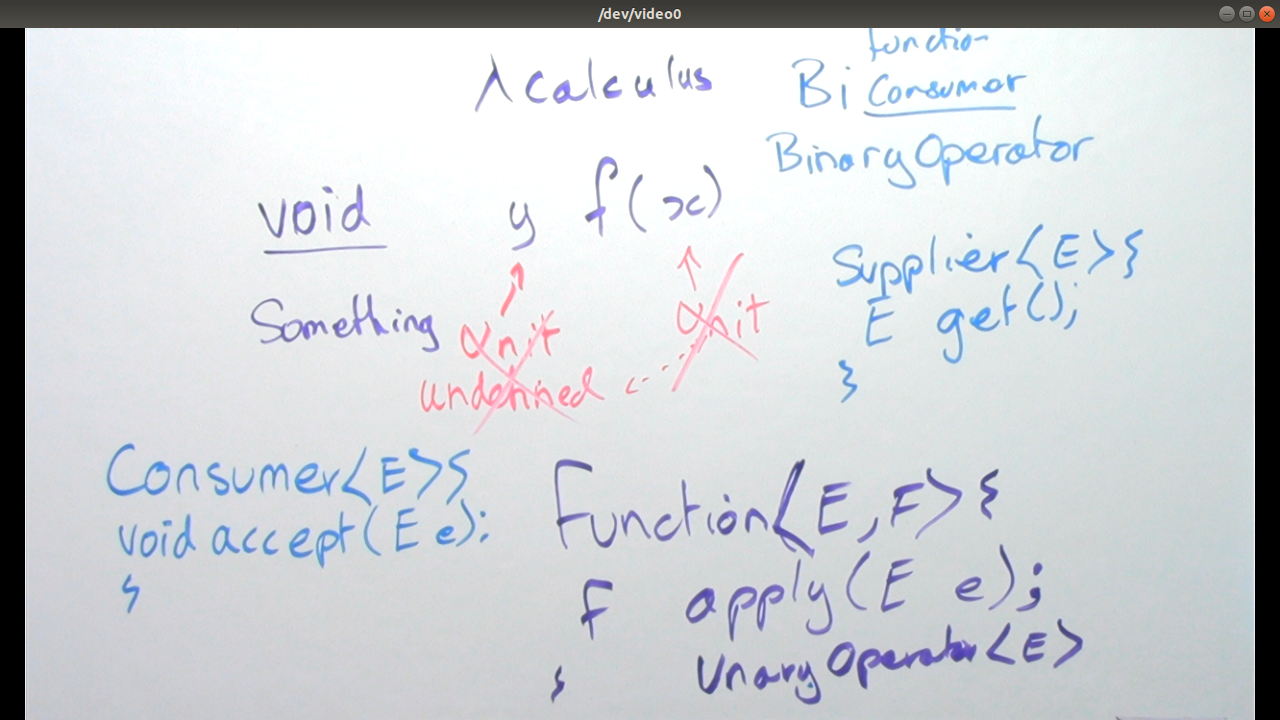 /dev/video0
λ calculus
function
Bi Consumer
BinaryOperator
void
y f(x)
Something
unit
unit
undefined
Supplier<E>{
E get();
}
Consumer<E>{
void accept(E e);
}
Function<E,F>{
F apply(E e);
}
UnaryOperator<E>